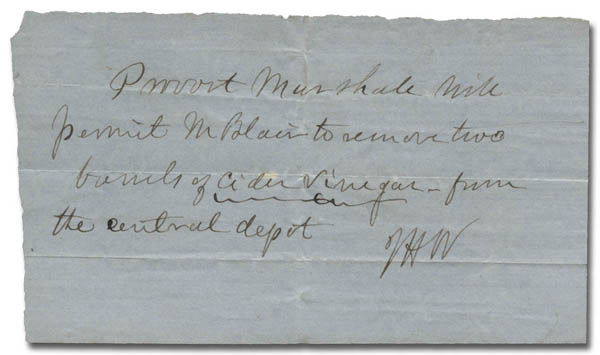 Provost Marshale will
permit M Blair to remove two
barrels of Cider Vinegar - from
the central depot
JHW